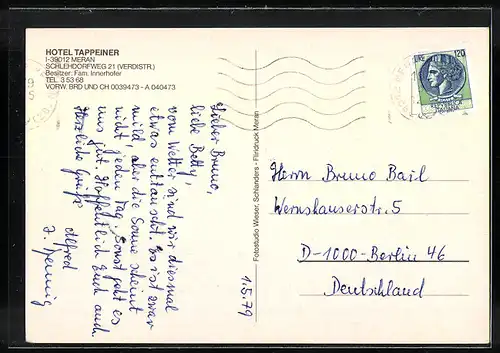 HOTEL TAPPEINER
I-39012 MERAN
SCHLEHDORFWEG 21 (VERDISTR.)
Besitzer: Fam. Innerhofer
TEL. 3 53 68
VORW. BRD UND CH 0039473 - A 040473
Lieber Bruno,
liebe Betty,
vom Wetter sind wir diesmal
etwas enttäuscht. Es ist zwar
mild, aber die Sonne scheint
nicht jeden Tag. Sonst geht es
uns gut. Hoffentlich Euch auch.
Herzliche Grüße
Alfred
1.5.79
Fotostudio Wieser, Schlanders - Finldruck Meran
LIRE 120
Herrn Bruno Basil
Wernshauserstr. 5
D-1000-Berlin 46
Deutschland